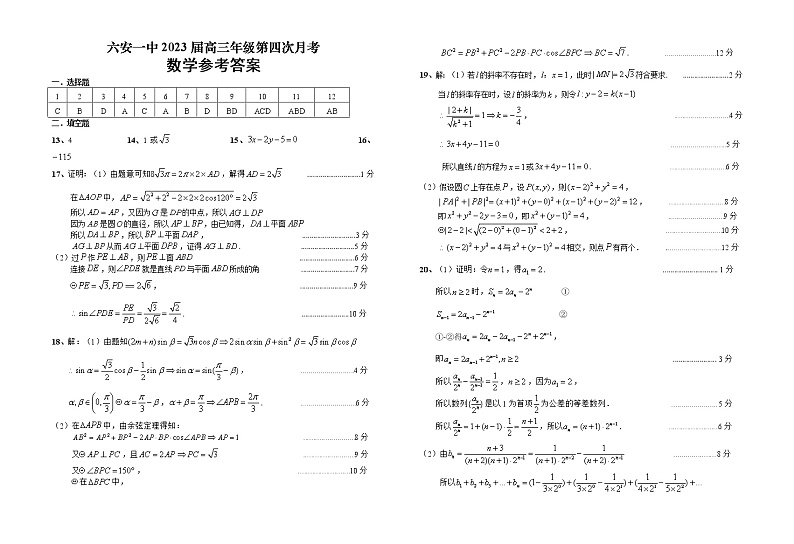 六安一中2023届高三年级第四次月考
数学参考答案
一. 选择题
1 2 3 4 5 6 7 8 9 10 11 12
C B D A C A B D BD ACD ABD AB
二. 填空题
13、4 14、1 或 √3 15、3x-2y-5=0 16、
-115
17、证明：（1）由题意可知8√3π=2π×2×AD，解得AD=2√3 ............1分
在△AOP中，AP=√(2²+2²-2×2×2cos120°)=2√3
所以AD=AP，又因为G是DP的中点，所以AG⊥DP
因为AB是圆O的直径，所以AP⊥BP，由已知得，DA⊥平面ABP
所以DA⊥BP，所以BP⊥平面DAP， ............3分
AG⊥BP从而AG⊥平面DPB，证得AG⊥BD． ............5分
（2）过P作PE⊥AB，则PE⊥面ABD ............6分
连接DE，则∠PDE就是直线PD与平面ABD所成的角 ............7分
PE=√3,PD=2√6， ............9分
∴sin∠PDE=PE/PD=√3/(2√6)=√2/4． ............10分
18、解：（1）由题知(2m+n)sinβ=√3ncosβ⇒2sinαsinβ+sin²β=√3sinβcosβ
∴sinα=√3/2cosβ-1/2sinβ⇒sinα=sin(π/3-β)， ............4分
α,β∈(0,π/3) α=π/3-β，α+β=π/3⇒∠APB=2π/3． ............6分
（2）在△APB中，由余弦定理得知：
AB²=AP²+BP²-2AP·BP·cos∠APB⇒AP=1 ............8分
又 AP⊥PC，且AC=2AP⇒PC=√3 ............9分
又 ∠BPC=150°， ............10分
在△BPC中，
BC²=PB²+PC²-2PB·PC·cos∠BPC⇒BC=√7． ............12分
19、解：（1）若l的斜率不存在时，l：x=1，此时|MN|=2√3符合要求． ............2分
当l的斜率存在时，设l的斜率为k，则令l:y-2=k(x-1)
∴|2+k|/√(k²+1)=1⇒k=-3/4， ............4分
∴3x+4y-11=0 ............5分
所以直线l的方程为x=1或3x+4y-11=0． ............6分
（2）假设圆C上存在点P，设P(x,y)，则(x-2)²+y²=4，
|PA|²+|PB|²=(x+1)²+(y-0)²+(x-1)²+(y-2)²=12， ............8分
即x²+y²-2y-3=0，即x²+(y-1)²=4， ............9分
|2-2|<√((2-0)²+(0-1)²)<2+2， ............10分
∴(x-2)²+y²=4与x²+(y-1)²=4相交，则点P有两个． ............12分
20、（1）证明：令n=1，得a₁=2． ............1分
所以n≥2时，Sₙ=2aₙ-2ⁿ ①
Sₙ₋₁=2aₙ₋₁-2ⁿ⁻¹ ②
①-②得aₙ=2aₙ-2aₙ₋₁-2ⁿ+2ⁿ⁻¹，
即aₙ=2aₙ₋₁+2ⁿ⁻¹,n≥2 ............3分
所以aₙ/2ⁿ-aₙ₋₁/2ⁿ⁻¹=1/2，n≥2，因为a₁=2，
所以数列{aₙ/2ⁿ}是以1为首项1/2为公差的等差数列． ............5分
所以aₙ/2ⁿ=1+(n-1)·1/2=(n+1)/2，所以aₙ=(n+1)·2ⁿ⁻¹． ............6分
（2）由bₙ=(n+3)/((n+2)(n+1)·2ⁿ⁻¹)=1/((n+1)·2ⁿ⁻²)-1/((n+2)·2ⁿ⁻¹) ............8分
所以b₁+b₂+b₃+...+bₙ=(1-1/(3×2⁰))+(1/(3×2⁰)-1/(4×2¹))+(1/(4×2¹)-1/(5×2²))+...